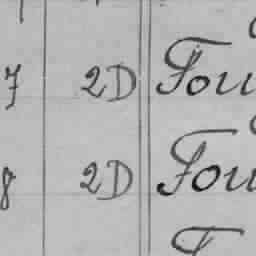 7 2D Fou
8 2D Fou